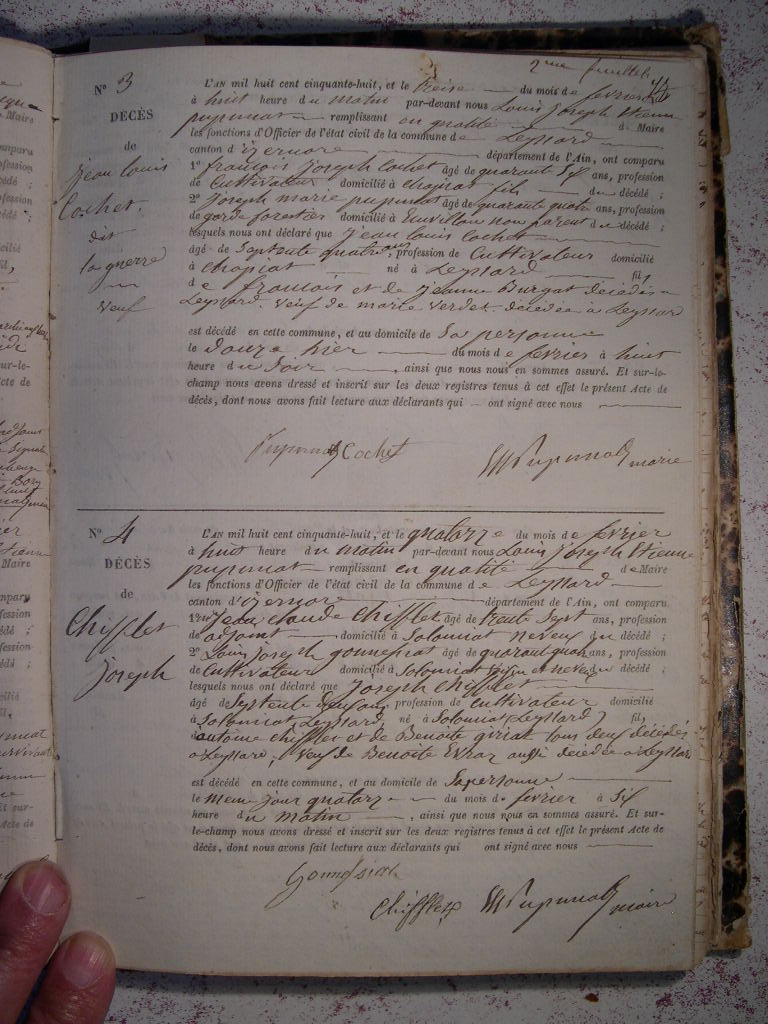 2me feuillet
N° 3
DÉCÈS
de
jean louis
Cochet
dit
la guerre
veuf
L'AN mil huit cent cinquante-huit, et le treise du mois de fevrier
à huit heure du matin par-devant nous Louis Joseph Etienne
pupunat remplissant en qualité de Maire
les fonctions d'Officier de l'état civil de la commune de Leyssard
canton d'izernore département de l'Ain, ont comparu
1° francois Joseph Cochet âgé de quarante six ans, profession
de Cultivateur domicilié à chapiat fils du décédé ;
2° Joseph marie pupunat âgé de quarante quatre ans, profession
de garde forestier domicilié à non parent du décédé ;
lesquels nous ont déclaré que Jean louis Cochet
âgé de Septente quatre ans, profession de Cultivateur domicilié
à chapiat né à Leyssard fil
de francois et de Jeanne Burgat décédés à
Leyssard. veuf de marie verdet décédée à Leyssard
est décédé en cette commune, et au domicile de Sa personne
le douze hier du mois de fevrier à huit
heure du Soir , ainsi que nous nous en sommes assuré. Et sur-le-
champ nous avons dressé et inscrit sur les deux registres tenus à cet effet le présent Acte de
décès, dont nous avons fait lecture aux déclarants qui ont signé avec nous
Pupunat Cochet Pupunat maire
N° 4
DÉCÈS
de
Chifflet
joseph
L'AN mil huit cent cinquante-huit, et le quatorze du mois de fevrier
à huit heure du matin par-devant nous Louis Joseph Etienne
pupunat remplissant en qualité de Maire
les fonctions d'Officier de l'état civil de la commune de Leyssard
canton d'izernore département de l'Ain, ont comparu
1° Jean claude Chifflet âgé de trente Sept ans, profession
de adjoint domicilié à Solomiat neveu du décédé ;
2° Louis Joseph gonnessiat âgé de ans, profession
de Cultivateur domicilié à Solomiat voisin et neveu du décédé ;
lesquels nous ont déclaré que Joseph Chifflet
âgé de Septente deux ans, profession de cultivateur domicilié
à Solomiat (Leyssard) né à Solomiat (Leyssard) fil
d'antoine chifflet et de Benoite giriat tous deux décédés
à Leyssard, veuf de Benoite Evraz aussi décédée à Leyssard
est décédé en cette commune, et au domicile de Sa personne
le meme jour quatorze du mois de fevrier à Six
heure du matin , ainsi que nous nous en sommes assuré. Et sur-
le-champ nous avons dressé et inscrit sur les deux registres tenus à cet effet le présent Acte de
décès, dont nous avons fait lecture aux déclarants qui ont signé avec nous
Gonnessiat
Chifflet Pupunat maire